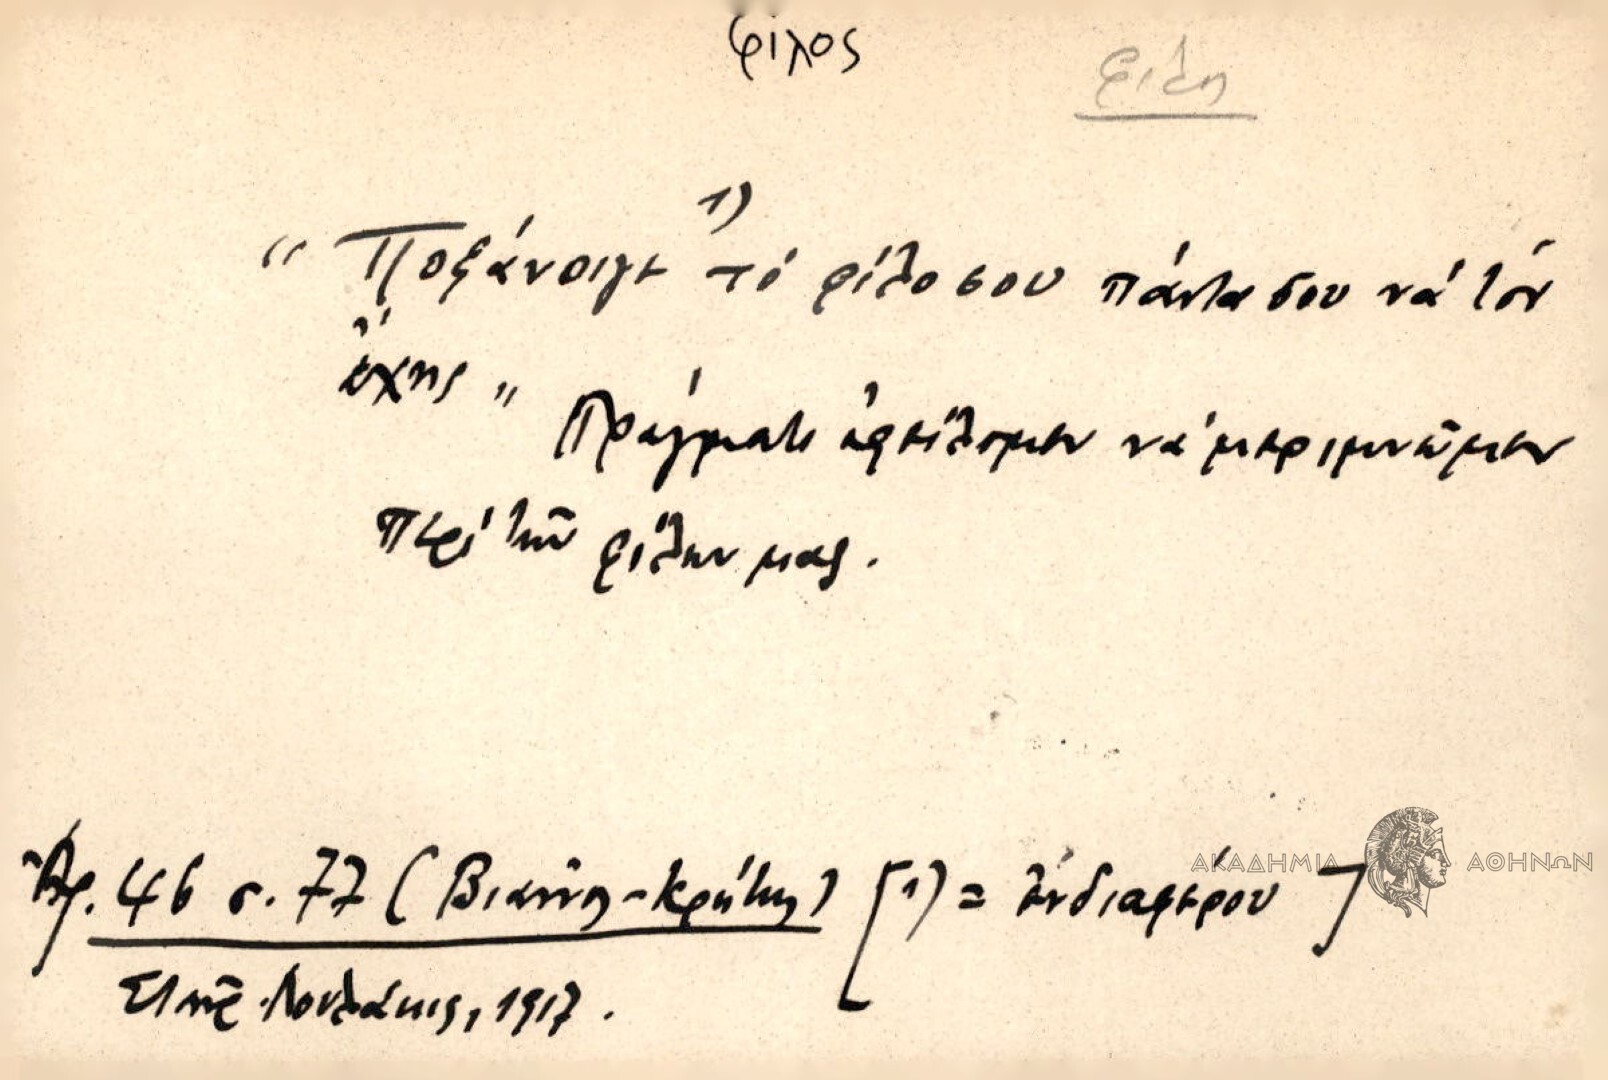 φίλος
φίλη
1)
"Ποξάνοιγε τό φίλο σου πάντα σου νά τόν
ἔχῃς" Πράγματι ὀφείλομεν νά μεριμνῶμεν
περί τῶν φίλων μας.
Ἀρ. 46 σ. 77 (Βιάννος-Κρήτης) [1) = ἐνδιαφέρου]
Σπυρ. Λουλάκης, 1917.
ΑΚΑΔΗΜΙΑ ΑΘΗΝΩΝ